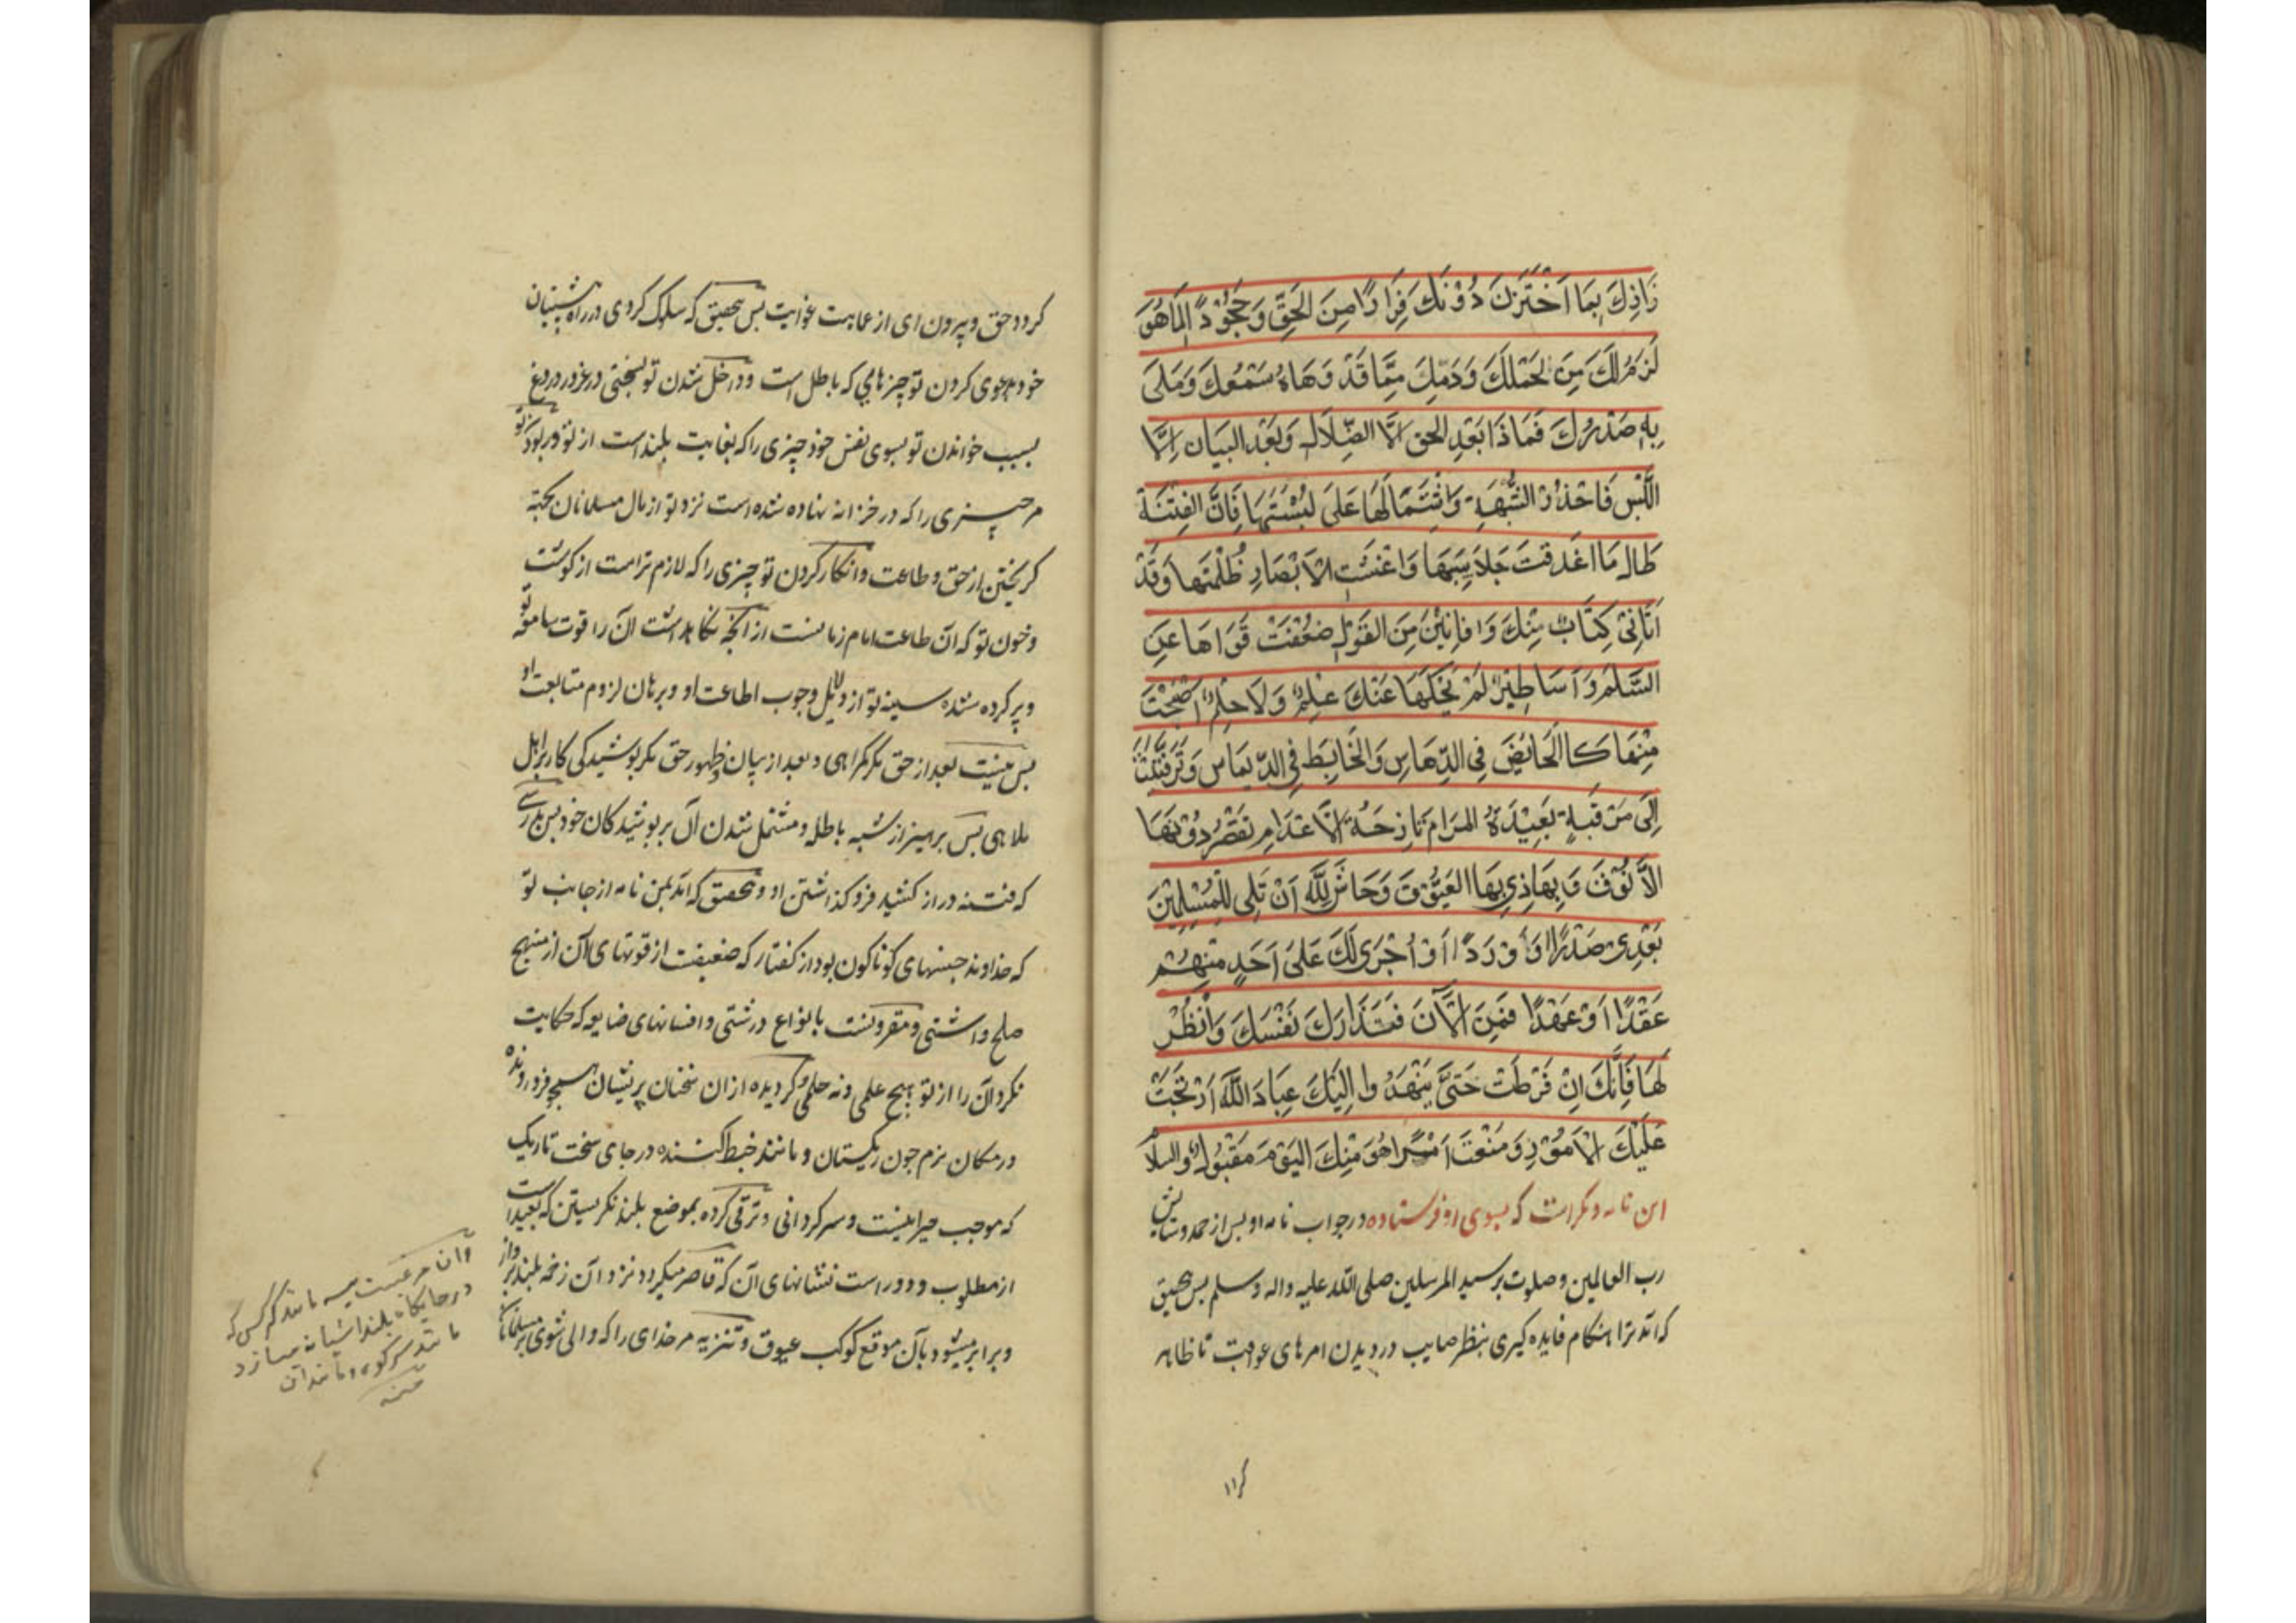 زَاذِكَ بِمَا اَخْتَزَنَ دُوْنَكَ فِرَارًا مِنَ الحَقِّ وَ جُحُوْدًا لِمَا هُوَ
لَزِمَ لَكَ مِنْ لَحْمِلَكَ وَدَمِكَ مِمَّا قَدْ وَهَاهُ سَمْعُكَ وَ مَلَى
بِهِ صَدْرُكَ فَمَاذَا بَعْدِ الحق اِلَّا الضِّلَال وَبَعْدِ البَيَان اِلَّا
اللَّبْس فَاحْذُرْ الشُّبْهَةِ وَاشْتَمَالَهَا عَلَى لَبْسَتِهَا فَاِنَّ الفِتْنَةَ
طَال مَا اغَدقَتْ جَلَابِيبَهَا وَاعْشَتِ الاَبْصَارِ ظُلْمَتِهَا وَقَدْ
اَتَانِىْ كِتَابٌ مِنْكَ وَافَانِيْنَ مِنَ القَوْلِ ضَعُفَتْ قَوَاهَا عَنِ
السَّلْمِ وَاَسَاطِيْرُ لَمْ يَحُكْهَا عَنْكَ عِلْمٌ وَلَا حِلْمٌ اَصْبَحْتَ
مِنْهَا كَا الخَائِضَ فِى الدَّهَاسِ وَالخَابِطَ فِى الدّيمَاسِ وَتَرَقَّيْتَ
اِلَى مَرْقَبَةٍ بَعِيْدَةُ المَرَام نَازِحَةُ الَاعْلَامِ تَقْصُرُ دُوْنَهَا
الاَنُوْقَ وَ يِحَاذِى بِهَا العَيُّوْقَ وَحَاشَ لِلّهِ اَنْ تَلِى لِلْمُسْلِمِيْنَ
بَعْدِىْ صَدْرًا اَوْ وَرَدًا اَوْ اُجْرَى لَكَ عَلَى اَحَدٍ مِنْهُمْ
عَقْدًا اَوْ عَهْدًا فَمِنَ الاَّنَ فَتَدَارَكَ نَفْسَكَ وَانْظُرْ
لَهَا فَاِنَّكَ اِنْ فَرَطَتْ حَتَّى يَنْهَدُ وا اِلَيْكَ عِبَادَ اللهَ اَرْتَجَتْ
عَلَيْكَ الاَمُوْرِ وَ مَنَعْتَ اَمْرًا هُوَ مِنْكَ اليَوْمَ مَقْبُولُ والسلام
این نامه دیکراست که بسوی او فرستاده در جواب نامه او بس از حمد وستایش
رب العالمین و صلوت بر سید المرسلین صلی الله علیه واله وسلم بس بتحقیق
که آمد ترا هنکام فایده کیری بنظر صایب در دیدن امرهای عواقبت تا ظاهر
کردد حق و بیرون ای از عمایت غوایت بس بتحقیق که سلوک کردی در راه پیشینیان
خود بدعوی کردن تو چیزهایی که باطل است و داخل شدن تو بسختی در غرور دروغ
بسبب خواندن تو بسوی نفس خود چیزی را که بغایت بلند است از تو و بربودن تو
مر چیزی را که در خزانه نهاده شده است نزد تو از مال مسلمانان بجهة
کریختن از حق و طاعت و انکار کردن تو چیزی را که لازم تراست از کوشت
و خون تو که آن طاعت امام زمانست از انچه نکاه داشت ان را قوت سامعه تو
و پر کرده شده سینه تو از دلایل وجوب اطاعت او و برهان لزوم متابعت او
بس نیست بعد از حق مکر کمراهی و بعد از بیان و ظهور حق مکر پوشیدکی کار بر اهل
ملاهی بس برهیز از شبه باطله و مشتمل شدن آن بر پوشیدکان خود بس بدرستی
که فتنه دراز کشید فرو کذاشتن او و بتحقیق که آمد بمن نامه از جانب تو
که خداوند جنسهای کوناکون بود از کفتار که ضعیفت از قوتهای آن از منهج
صلح و اشتی و مقرونست بانواع درشتی و افسانهای ضایعه که حکایت
نکرد آن را از تو هیچ علمی و نه حلمی و کردیده از ان سخنان پریشان همچو فرورونده
در مکان نرم چون ریکستان و مانند خبط کننده در جای سخت تاریک
که موجب حیرانیست و سرکردانی و ترقی کرده بموضع بلند نکریستن که بعید است
از مطلوب و دور است نشانهای آن که قاصر میکردد نزد آن زخمه بلند پرواز
و برابر میشود بآن موقع کوکب عیوق و تنزیه مر خدای را که والی شوی بر مسلمانان
و ان مرغیست مانند کرکس که
در جایکاه بلند اشیانه میسازد
مانند سر کوه و مانند آن
منه